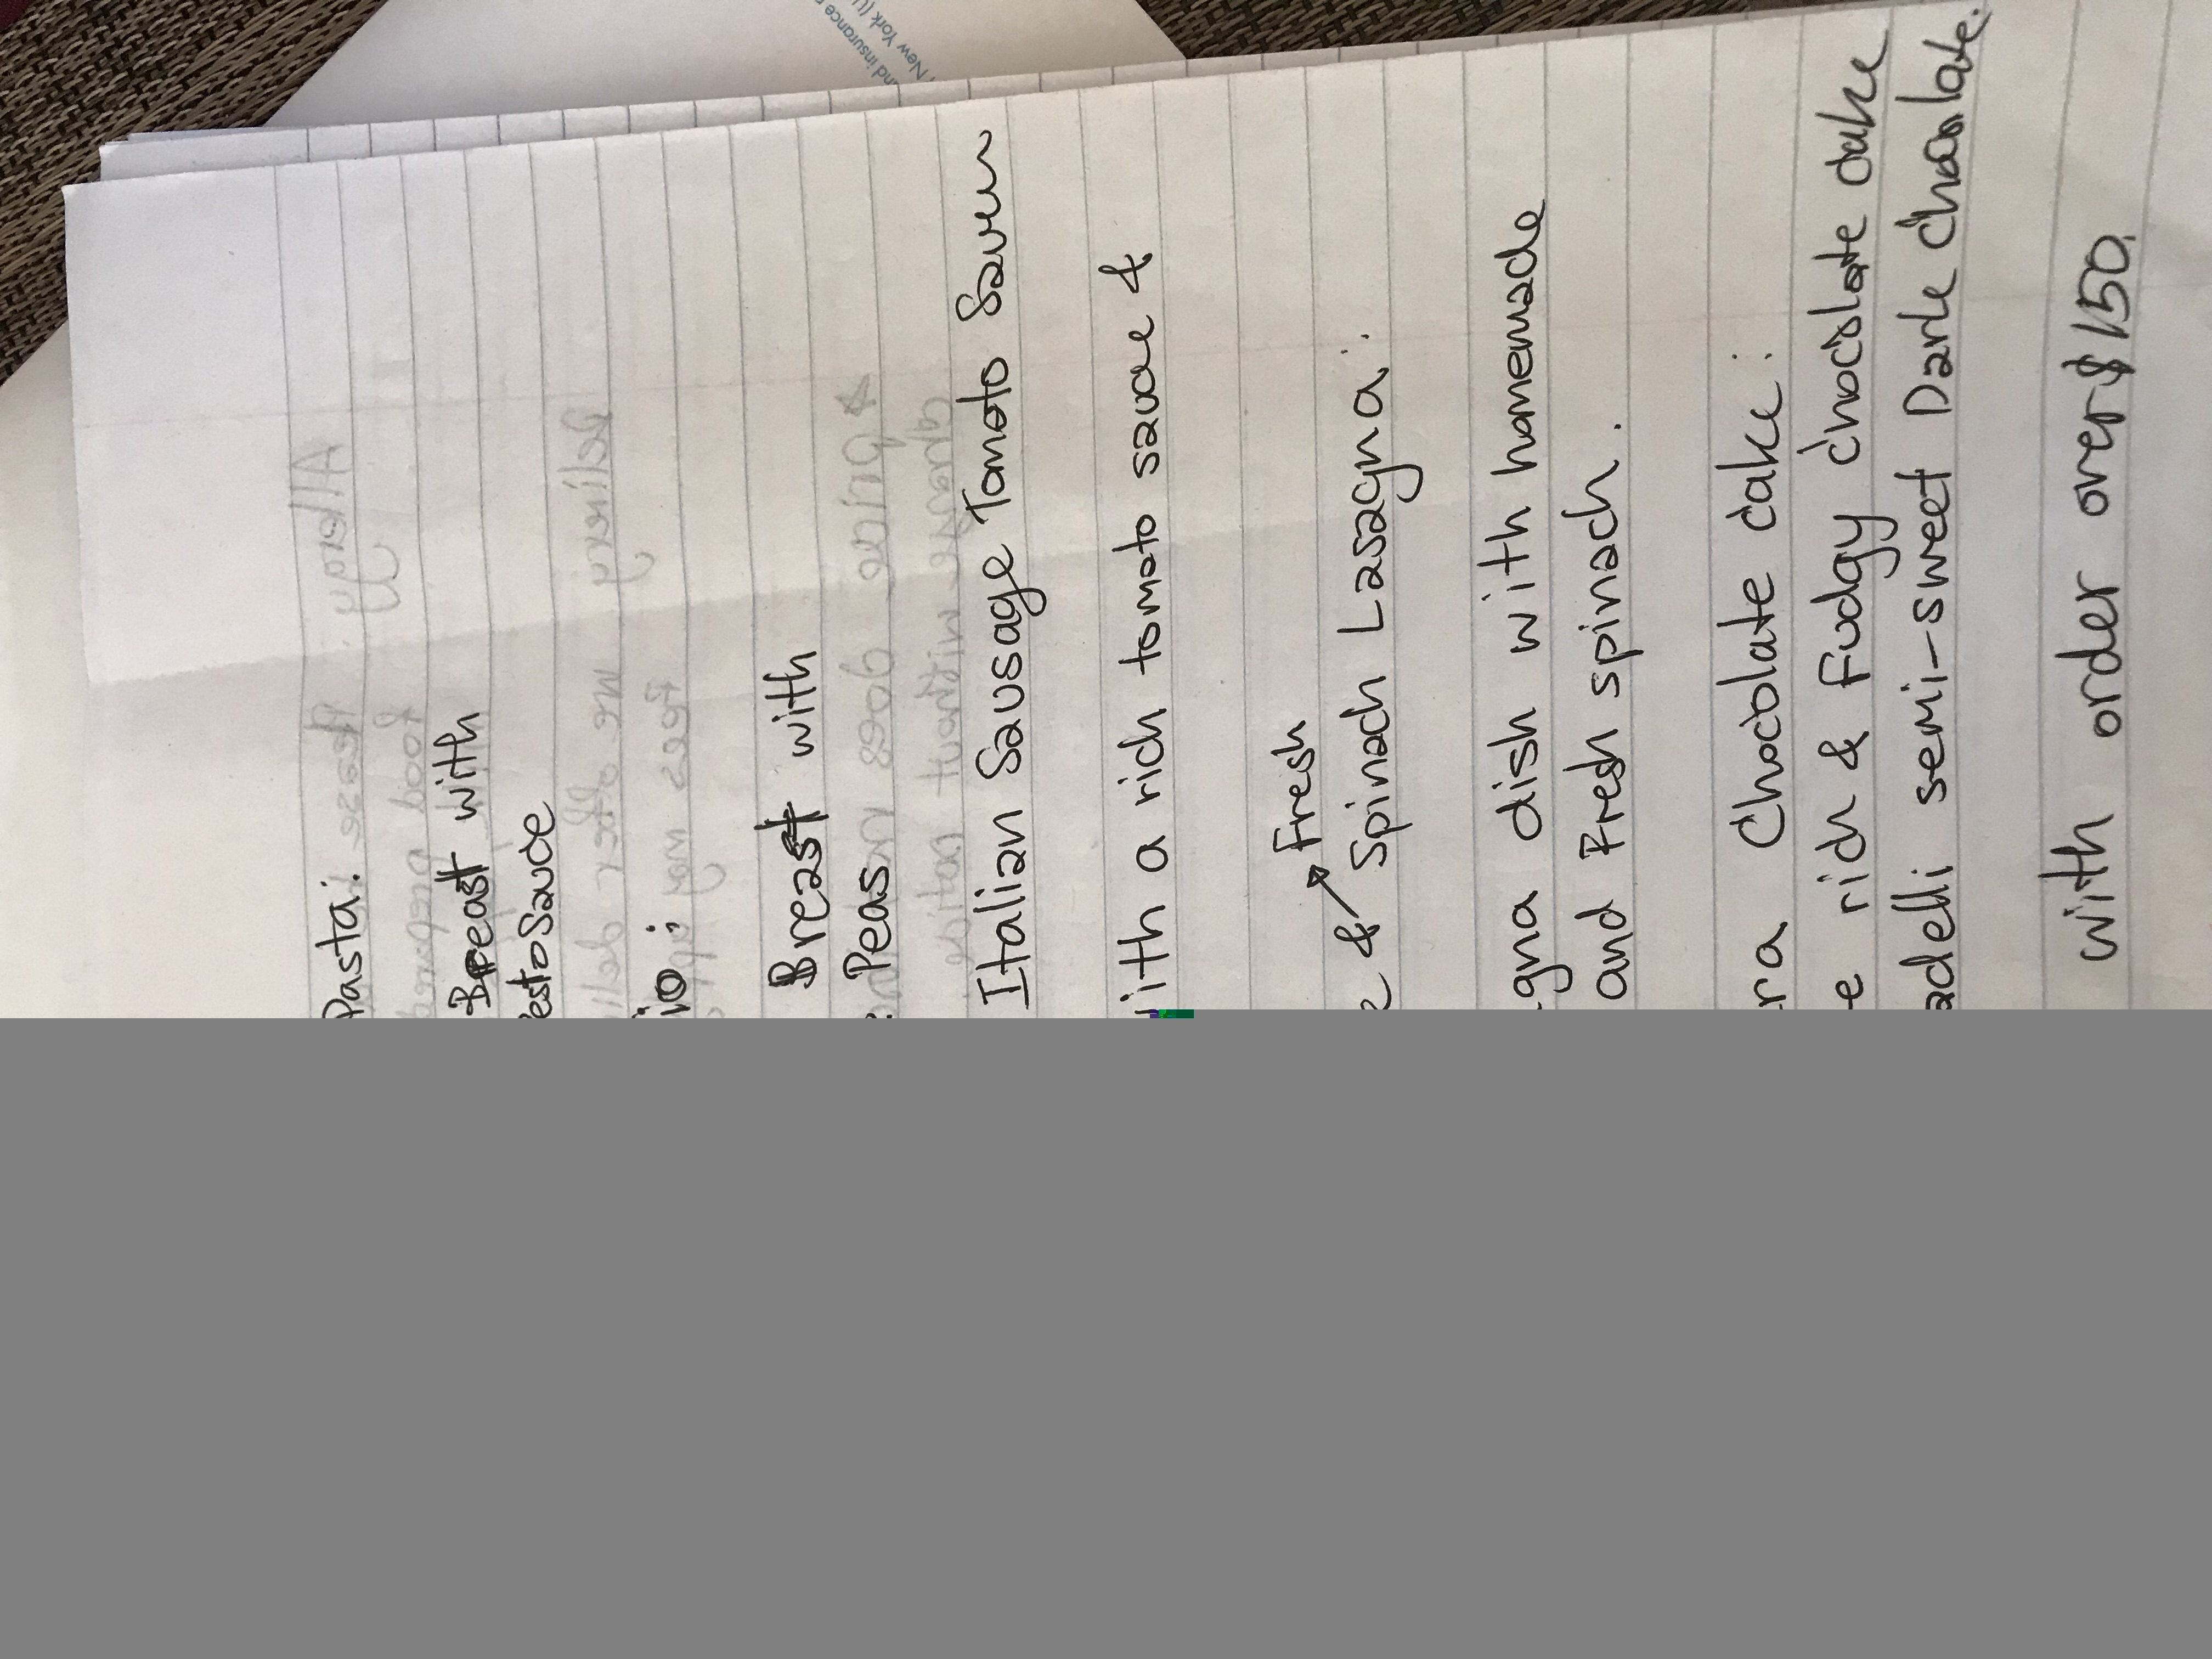 Pasta:
Breast with
esto Sauce
io:
Breast with
: Peas
Italian Sausage Tomato Sauce
ith a rich tomato sauce &
Fresh
& Spinach Lasagna:
gna dish with homemade
and Fresh spinach.
ra Chocolate Cake:
e rich & Fudgy Chocolate Cake
adelli semi-sweet Dark Chocolate.
with order over $150.
nd insurance
New York (U